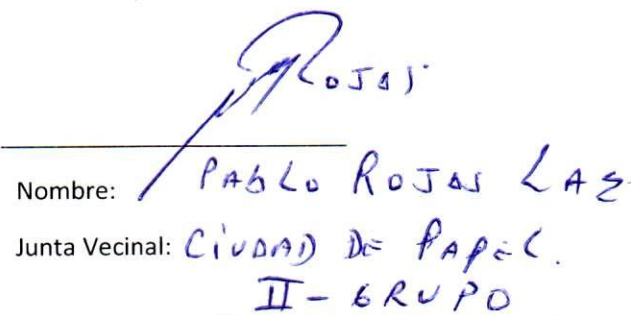 Rojas
Nombre: PABLO ROJAS
Junta Vecinal: CIUDAD DE PAPEL.
II - GRUPO